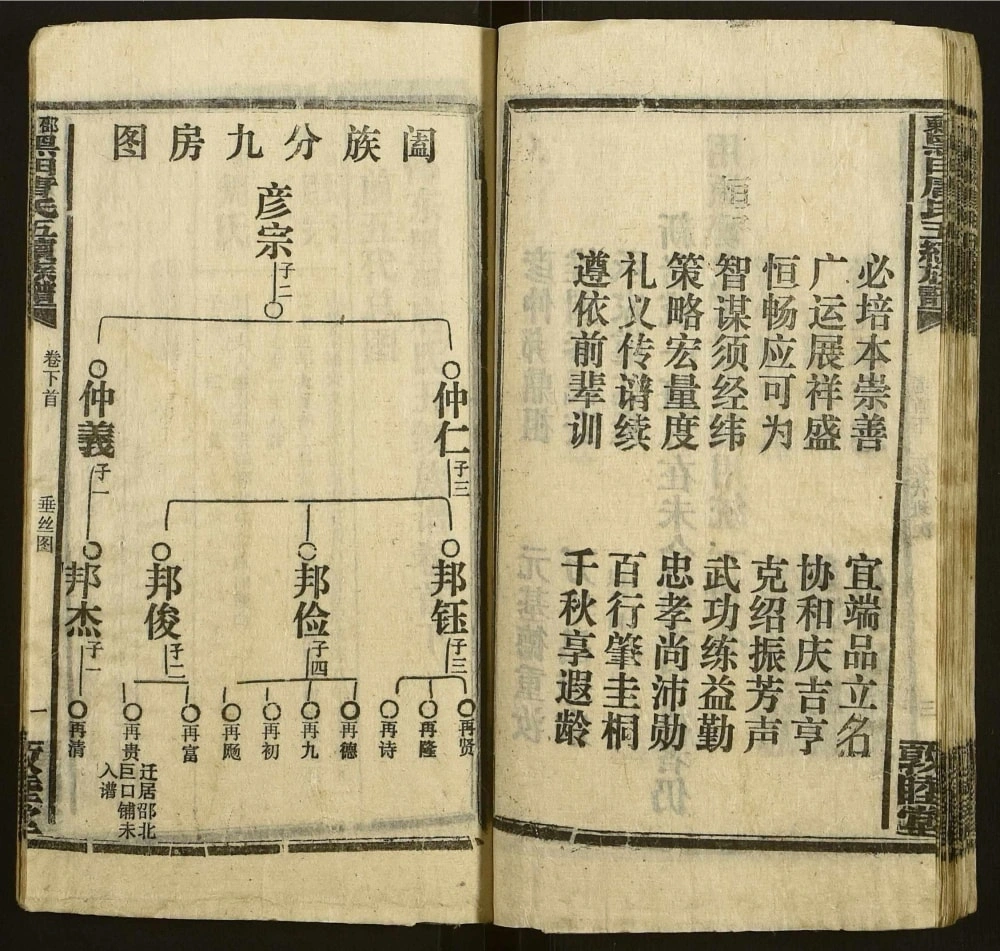 必培本崇善
宜端品立名
广运展祥盛
协和庆吉亨
恒畅应可为
克绍振芳声
智谋须经纬
武功练益勤
策略宏量度
忠孝尚沛勋
礼义传谱续
百行肇圭桐
遵依前辈训
千秋享遐龄
三
敦睦堂
阖族分九房图
彦宗
子二
仲仁
子三
仲義
子一
邦钰
子三
邦俭
子四
邦俊
子二
邦杰
子一
再贤
再隆
再诗
再德
再九
再初
再飏
再富
再贵
迁居邵北
巨口铺未
入谱
再清
黑田唐氏五續族譜
卷下首
垂丝图
一
敦睦堂